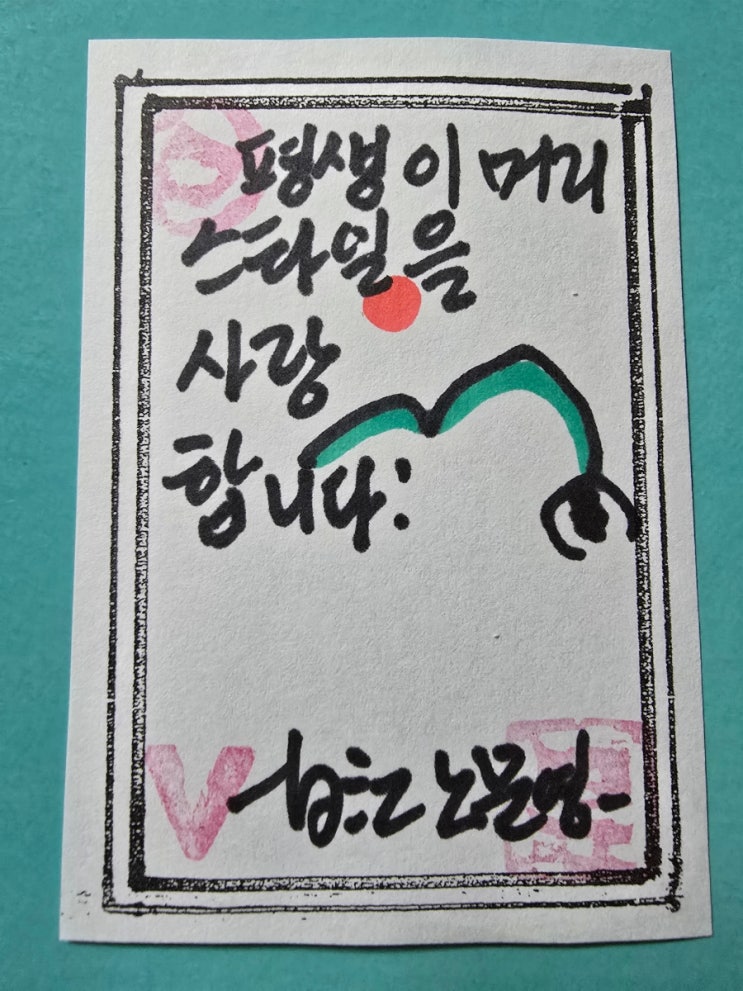 평생 이 머리
스타일을
사랑
합니다:
노문영